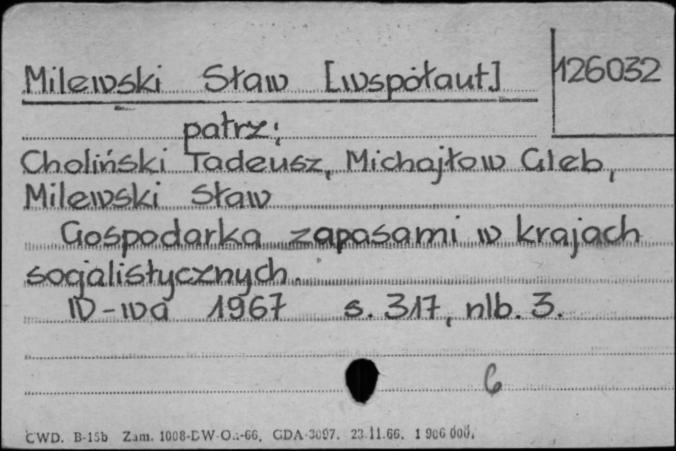 Milewski Sław [współaut] 126032
patrz:
Choliński Tadeusz, Michajłow Gleb,
Milewski Sław
Gospodarka zapasami w krajach
socjalistycznych.
W-wa 1967 s. 317, nlb. 3.
6
CWD. B-15b Zam. 1008-DW-O.:-66. GDA-3097. 23.11.66. 1 906 000.